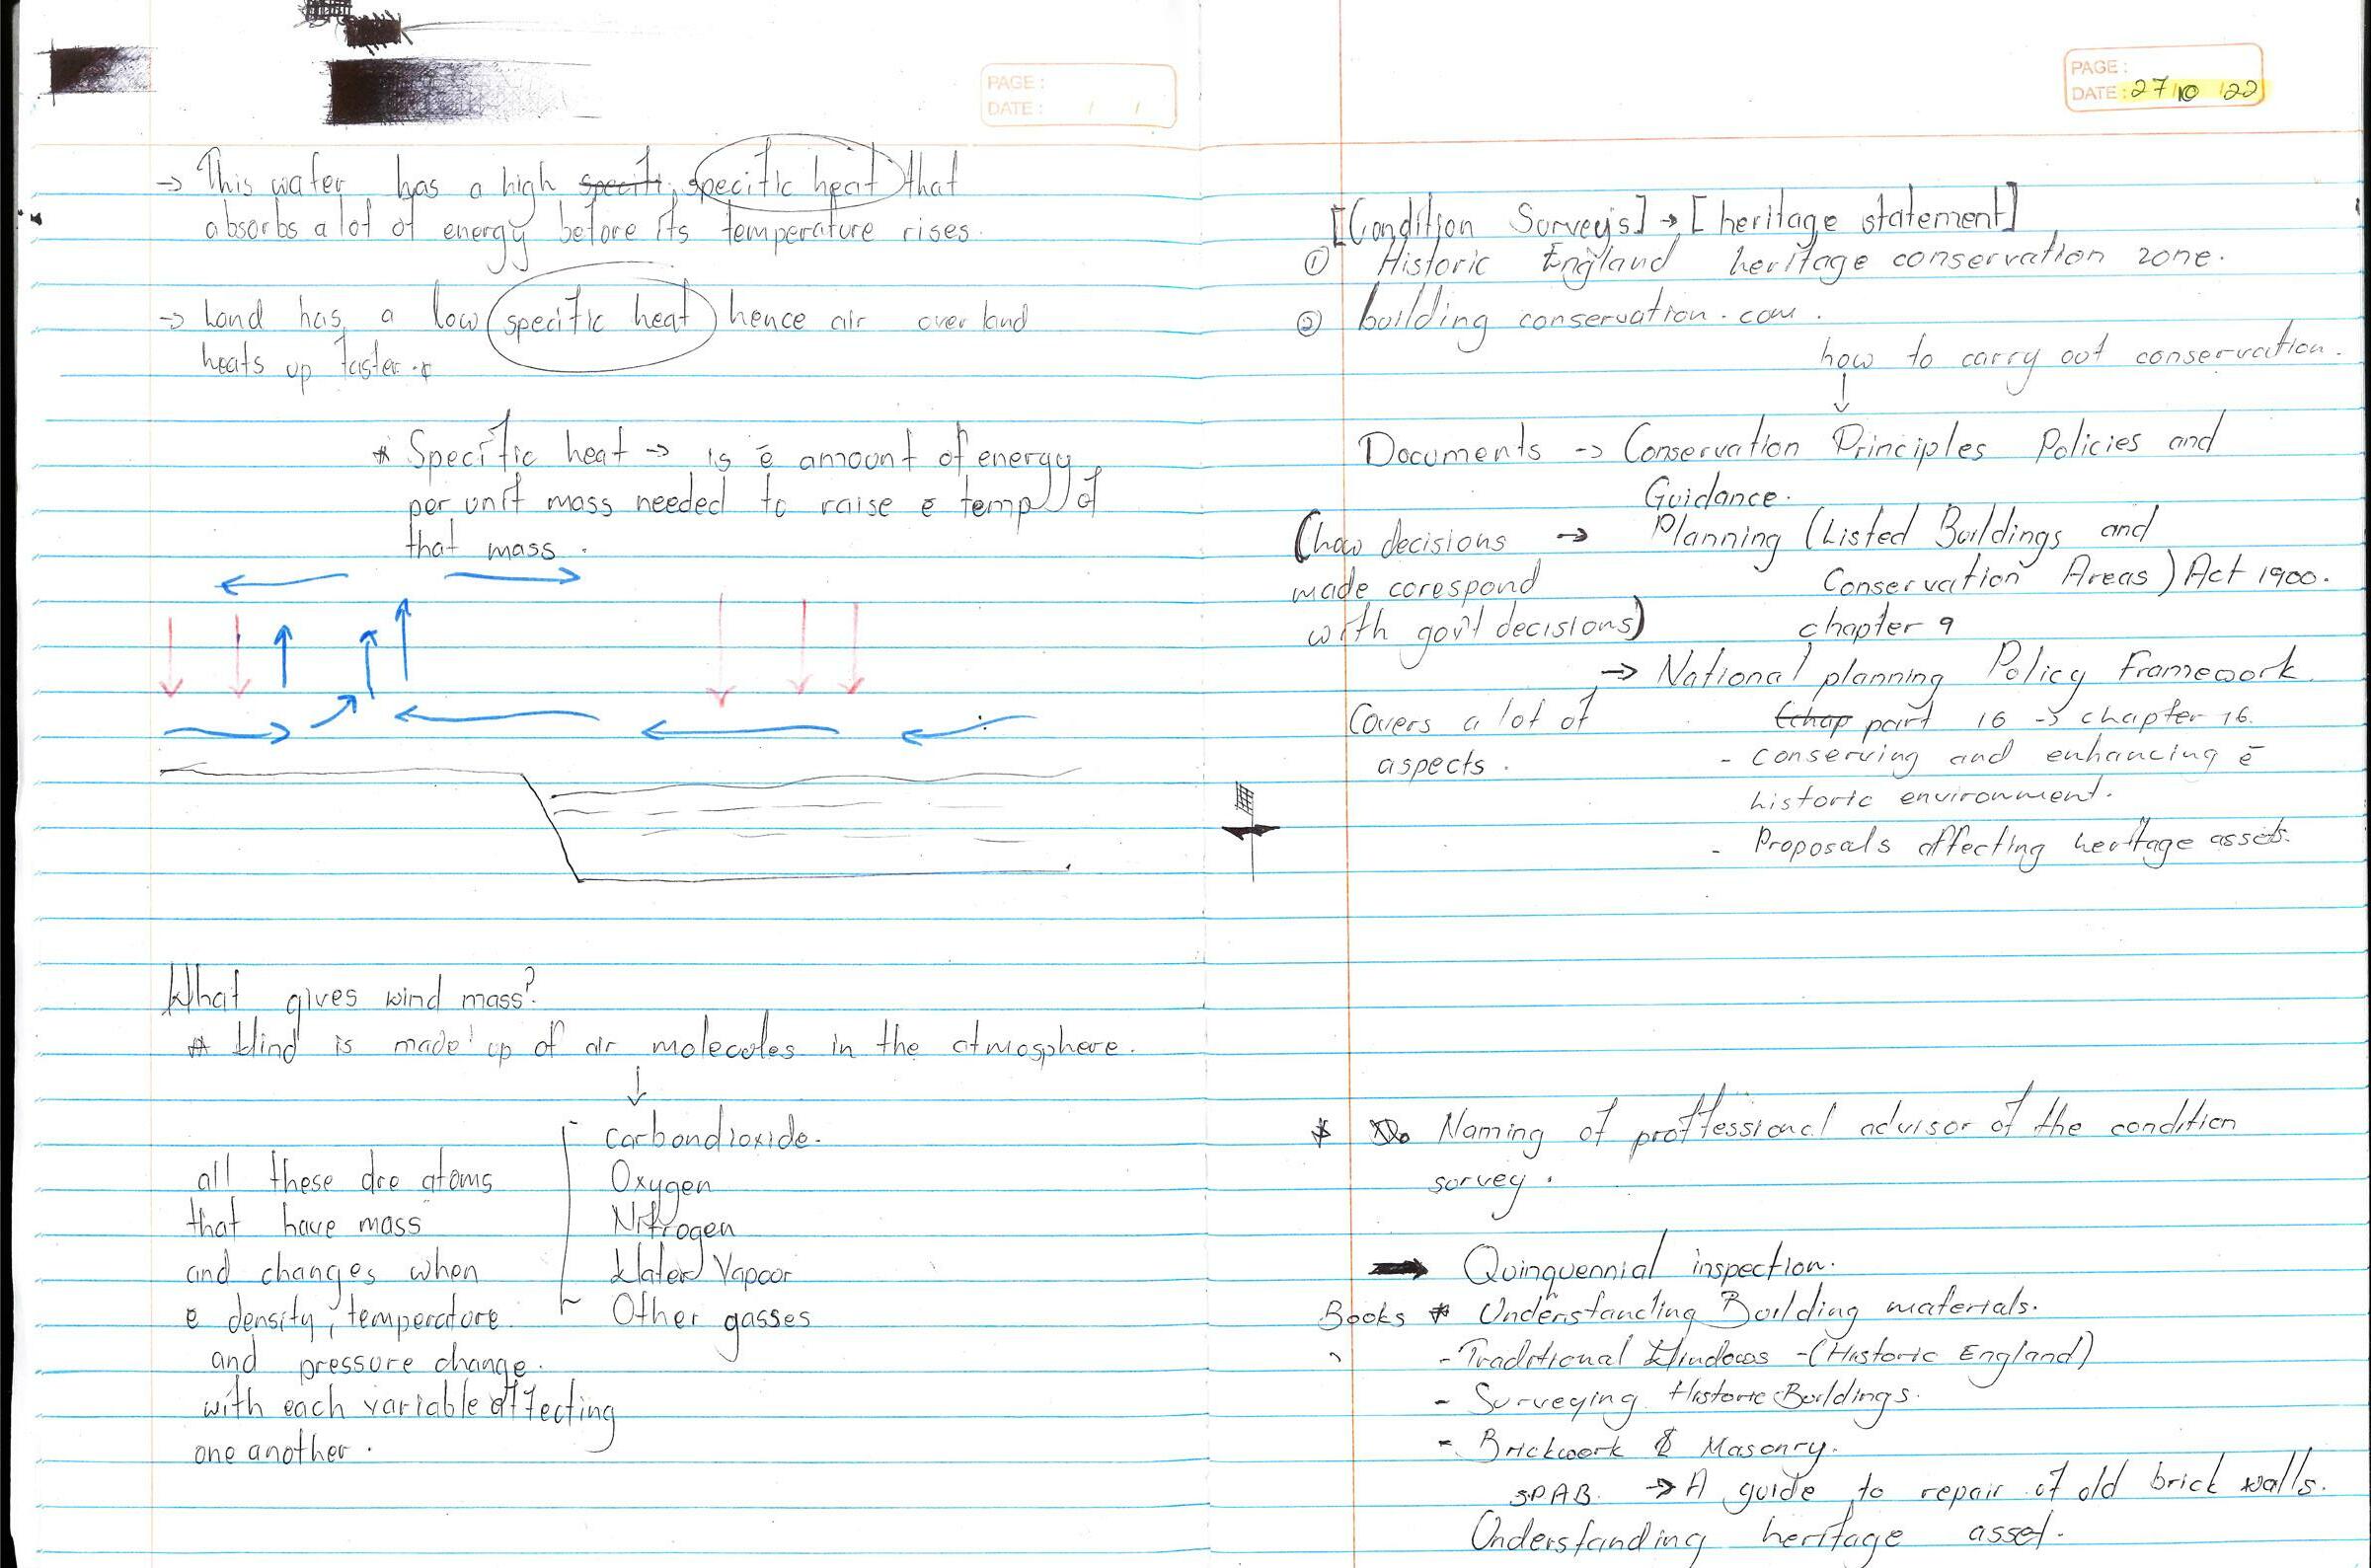 PAGE :
DATE : / /
→ This water has a high specifi, specific heat that
absorbs a lot of energy before its temperature rises.
→ Land has a low specific heat hence air over land
heats up faster.
* Specific heat → is ē amount of energy
per unit mass needed to raise e temp of
that mass.
What gives wind mass?
* Wind is made up of air molecules in the atmosphere.
↓
carbondioxide.
all these are atoms Oxygen
that have mass Nitrogen
and changes when Water Vapour
e density, temperature Other gasses
and pressure change.
with each variable affecting
one another.
PAGE :
DATE : 27 10 22
[Condition Surveys] → [heritage statement]
① Historic England heritage conservation zone.
② building conservation.com.
how to carry out conservation.
↓
Documents → Conservation Principles Policies and
Guidance.
(how decisions → Planning (Listed Buildings and
made corespond Conservation Areas) Act 1900.
with gov't decisions) chapter 9
→ National planning Policy Framework.
Covers a lot of (chap part 16 → chapter 16.
aspects. - conserving and enhancing ē
historic environment.
- Proposals affecting heritage assets.
* Naming of proffessional advisor of the condition
survey.
→ Quinquennial inspection.
Books * Understanding Building materials.
- Traditional Windows - (Historic England)
- Surveying Historic Buildings.
- Brickwork & Masonry.
SPAB. → A guide to repair of old brick walls.
Understanding heritage asset.